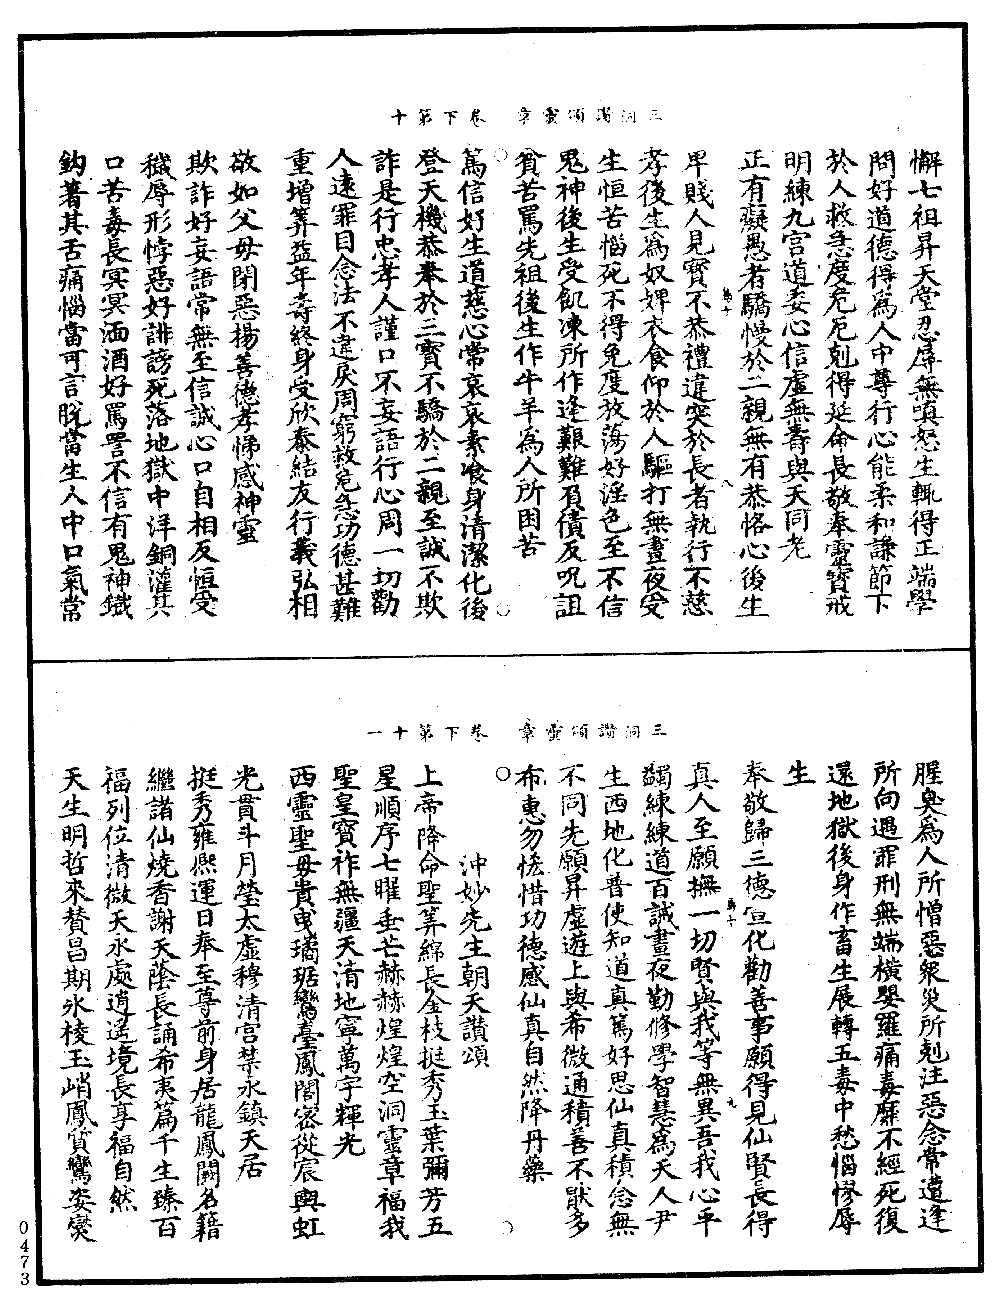 三洞讚頌靈章　卷下第十
懈七祖昇天堂忍辱無嗔怒生輒得正端學
問好道德得爲人中尊行心能柔和謙節下
於人救急度危厄剋得延命長敬奉靈寶戒
明練九宮道委心信虛無壽與天同老
正有癡愚者驕慢於二親無有恭恪心後生
卑賤人見寶不恭禮違突於長者執行不慈
孝後生爲奴婢衣食仰於人驅打無晝夜受
生恒苦惱死不得免度放蕩好淫色至不信
鬼神後生受飢凍所作逢艱難負債反呪詛
貧苦罵先祖後生作牛羊為人所困苦
篤信好生道慈心常哀哀素飡身清潔化後
登天機恭奉於三寶不驕於二親至誠不欺
詐是行忠孝人謹口不妄語行心周一切勸
人遠罪目念法不違戾周窮救危急功德甚難
重增筭益年壽終身受欣泰結友行義弘相
敬如父母閉惡揚善德孝悌感神靈
欺詐好妄語常無至信誠心口自相反恒受
穢辱形悖惡好誹謗死落地獄中洋銅灌其
口苦毒長冥冥湎酒好罵詈不信有鬼神鐵
鈎著其舌痛惱當可言脫當生人中口氣常
三洞讚頌靈章　卷下第十一
腥臭爲人所憎惡衆災所剋注惡念常遭逢
所向遇罪刑無端橫嬰羅痛毒靡不經死復
還地獄後身作畜生展轉五毒中愁惱慘辱
生
奉敬歸三德宣化勸善事願得見仙賢長得
真人至願撫一切賢與我等無異吾我心平
蠲練練道百誡晝夜勤修學智慧爲天人尹
生西地化普使知道真篤好思仙真積念無
不同先願昇虛遊上與希微通積善不厭多
布惠勿恡惜功德感仙真自然降丹藥
沖妙先生朝天讚頌
上帝降命聖筭綿長金枝挺秀玉葉彌芳五
星順序七曜垂芒赫赫煌煌空洞靈章福我
聖皇寶祚無疆天清地寧萬宇輝光
西靈聖母貴曳璚琚鸞臺鳳閤密從宸與虹
光貫斗月瑩太虛穆清宮禁永鎮天居
挺秀雍熙運日奉至尊前身居龍鳳闕名籍
繼諸仙燒香謝天蔭長誦希夷篇千生臻百
福列位清微天永處逍遥境長享福自然
天生明哲來贊昌期氷棱玉峭鳳質鸞姿爕
0473